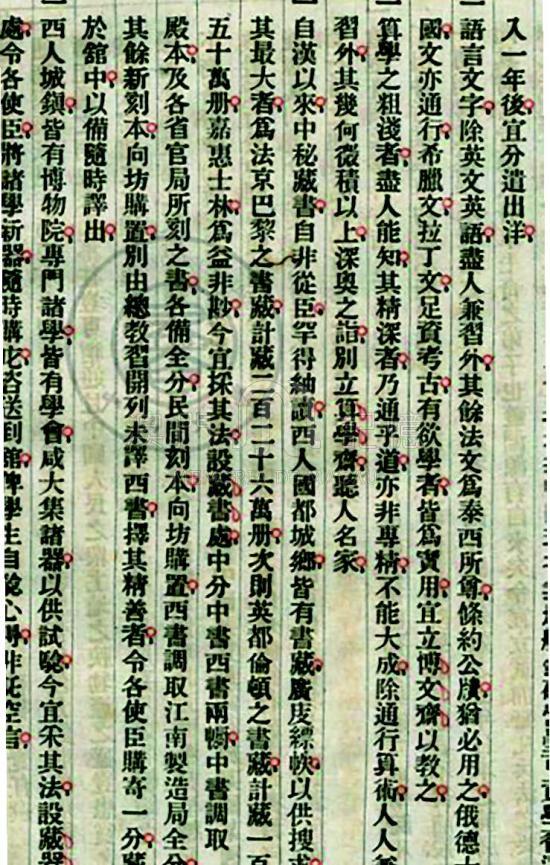 入一年後宜分遣出洋
一語言文字除英文英語盡人兼習外其餘法文爲泰西所尊條約公牘猶必用之俄德
國文亦通行希臘文拉丁文足資考古有欲學者皆爲實用宜立博文齋以教之
一算學之粗淺者盡人能知其精深者乃通乎道亦非專精不能大成除通行算術人人兼
習外其幾何微積以上深奧之詣別立算學齋聽人名家
一自漢以來中秘藏書自非從臣罕得紬讀西人國都城鄉皆有書藏廣庋縹帙以供搜求
其最大者爲法京巴黎之書藏計藏二百二十六萬册次則英都倫頓之書藏計藏一百
五十萬册嘉惠士林爲益非尠今宜採其法設藏書處中分中書西書兩㡡中書調取
殿本及各省官局所刻之書各備全分民間刻本向坊購置西書調取江南製造局全分
其餘新刻本向坊購置別由總教習開列未譯西書擇其精善者令各使臣購寄一分藏
於舘中以備隨時譯出
一西人城鎭皆有博物院專門諸學皆有學會咸大集諸器以供試驗今宜采其法設藏器
處令各使臣將諸學新器隨時購咨送到舘俾學生自驗心得非託空言